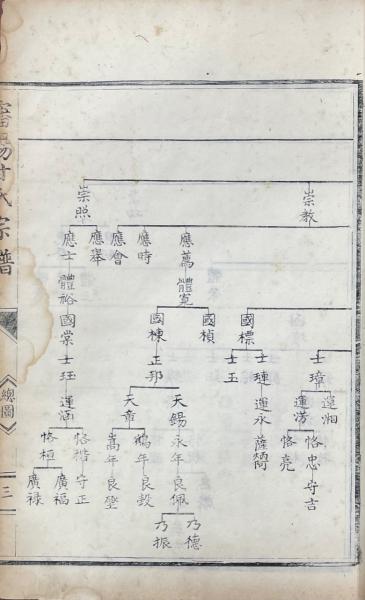 崇教
崇照
應萬
應時
應會
應舉
應士
體寬
體裕
國標
國楨
國棟
國棠
士璋
士璉
士玉
正邦
士珏
運湘
運澇
進永
天錫
天章
運涵
恪忠
恪亮
永年
鶴年
嵩年
恪楷
恪桓
守吉
良佩
良毅
良璧
守正
廣福
廣祿
乃德
乃振
氏宗譜
總圖
三